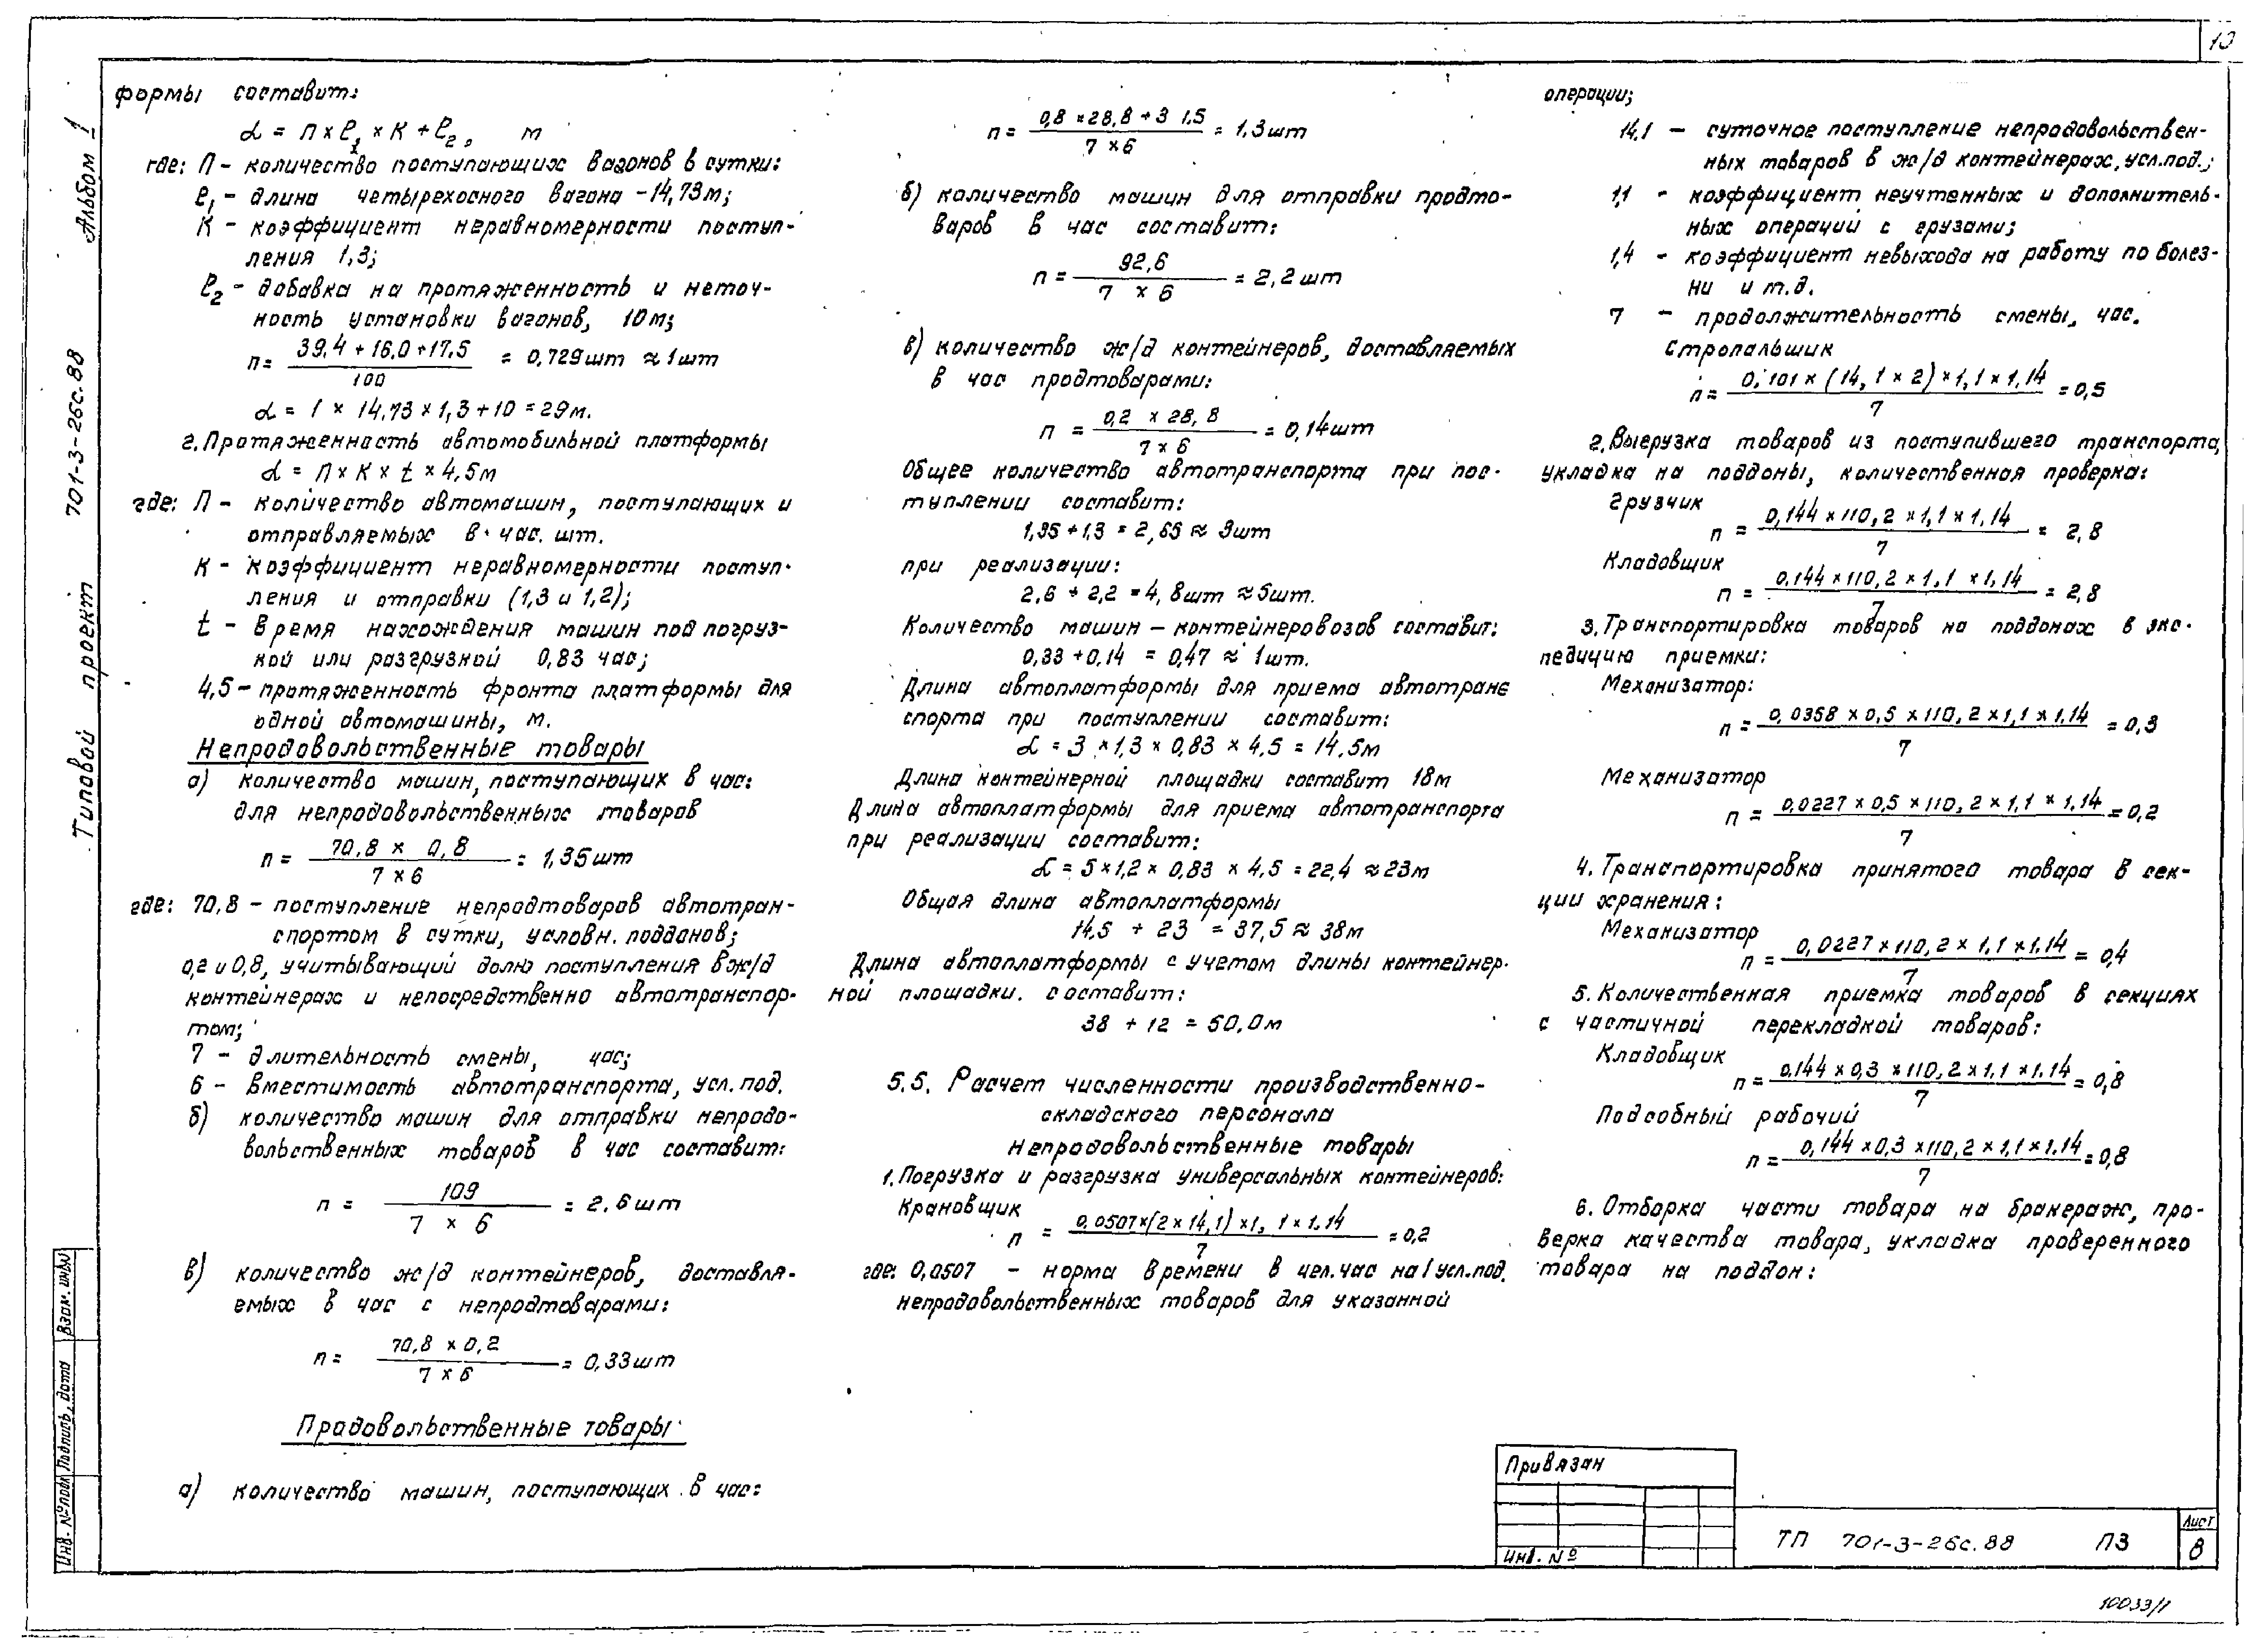 10
формы составит:
α = П × ℓ₁ × К + ℓ₂, м
где: П - количество поступающих вагонов в сутки:
ℓ₁ - длина четырехосного вагона - 14,73м;
К - коэффициент неравномерности поступ-
ления 1,3;
ℓ₂ - добавка на протяженность и неточ-
ность установки вагонов, 10м;
n = (39,4 + 16,0 + 17,5) / 100 = 0,729шт ≈ 1шт
α = 1 × 14,73 × 1,3 + 10 = 29м.
г. Протяженность автомобильной платформы
α = П × К × t × 4,5м
где: П - количество автомашин, поступающих и
отправляемых в час. шт.
К - коэффициент неравномерности поступ-
ления и отправки (1,3 и 1,2);
t - время нахождения машин под погруз-
кой или разгрузкой 0,83 час;
4,5 - протяженность фронта платформы для
одной автомашины, м.
Непродовольственные товары
а) количество машин, поступающих в час:
для непродовольственных товаров
n = (70,8 × 0,8) / (7 × 6) = 1,35шт
где: 70,8 - поступление непродтоваров автотран-
спортом в сутки, условн. поддонов;
0,2 и 0,8, учитывающий долю поступления в ж/д
контейнерах и непосредственно автотранспор-
том;
7 - длительность смены, час;
6 - вместимость автотранспорта, усл. под.
б) количество машин для отправки непродо-
вольственных товаров в час составит:
n = 109 / (7 × 6) = 2.6шт
в) количество ж/д контейнеров, доставля-
емых в час с непродтоварами:
n = (70,8 × 0,2) / (7 × 6) = 0,33шт
Продовольственные товары
а) количество машин, поступающих в час:
n = (0,8 × 28,8 + 3 1,5) / (7 × 6) = 1,3шт
б) количество машин для отправки продто-
варов в час составит:
n = 92,6 / (7 × 6) = 2,2шт
в) количество ж/д контейнеров, доставляемых
в час продтоварами:
n = (0,2 × 28,8) / (7 × 6) = 0,14шт
Общее количество автотранспорта при пос-
туплении составит:
1,35 + 1,3 = 2,65 ≈ 3шт
при реализации:
2,6 + 2,2 = 4,8шт ≈ 5шт.
Количество машин - контейнеровозов составит:
0,33 + 0,14 = 0,47 ≈ 1шт.
Длина автоплатформы для приема автотранс
спорта при поступлении составит:
α = 3 × 1,3 × 0,83 × 4,5 = 14,5м
Длина контейнерной площадки составит 18м
Длина автоплатформы для приема автотранспорта
при реализации составит:
α = 5 × 1,2 × 0,83 × 4,5 = 22,4 ≈ 23м
Общая длина автоплатформы
14,5 + 23 = 37,5 ≈ 38м
Длина автоплатформы с учетом длины контейнер-
ной площадки. составит:
38 + 12 = 50,0м
5.5. Расчет численности производственно-
складского персонала
Непродовольственные товары
1. Погрузка и разгрузка универсальных контейнеров:
Крановщик
n = (0,0507 × (2 × 14,1) × 1,1 × 1.14) / 7 = 0,2
где: 0,0507 - норма времени в чел. час на 1 усл. под.
непродовольственных товаров для указанной
операции;
14.1 - суточное поступление непродовольствен-
ных товаров в ж/д контейнерах, усл. под.;
1,1 - коэффициент неучтенных и дополнитель-
ных операций с грузами;
1,4 - коэффициент невыхода на работу по болез-
ни и т.д.
7 - продолжительность смены, час.
Стропальщик
n = (0,101 × (14,1 × 2) × 1,1 × 1,14) / 7 = 0,5
2. Выгрузка товаров из поступившего транспорта,
укладка на поддоны, количественная проверка:
Грузчик
n = (0,144 × 110,2 × 1,1 × 1,14) / 7 = 2,8
Кладовщик
n = (0,144 × 110,2 × 1,1 × 1,14) / 7 = 2,8
3. Транспортировка товаров на поддонах в экс-
педицию приемки:
Механизатор:
n = (0,0358 × 0,5 × 110,2 × 1,1 × 1,14) / 7 = 0,3
Механизатор
n = (0,0227 × 0,5 × 110,2 × 1,1 × 1,14) / 7 = 0,2
4. Транспортировка принятого товара в сек-
ции хранения:
Механизатор
n = (0,0227 × 110,2 × 1,1 × 1.14) / 7 = 0,4
5. Количественная приемка товаров в секциях
с частичной перекладкой товаров:
Кладовщик
n = (0,144 × 0,3 × 110,2 × 1,1 × 1.14) / 7 = 0,8
Подсобный рабочий
n = (0,144 × 0,3 × 110,2 × 1,1 × 1.14) / 7 = 0,8
6. Отборка части товара на бракераж, про-
верка качества товара, укладка проверенного
товара на поддон:
Типовой проект 701-3-26с.88 Альбом 1
Взам. инв.№
Подпись, дата
Инв. № подл
Привязан
Инв. №
ТП 701-3-26с.88 ПЗ
Лист
8
10033/1